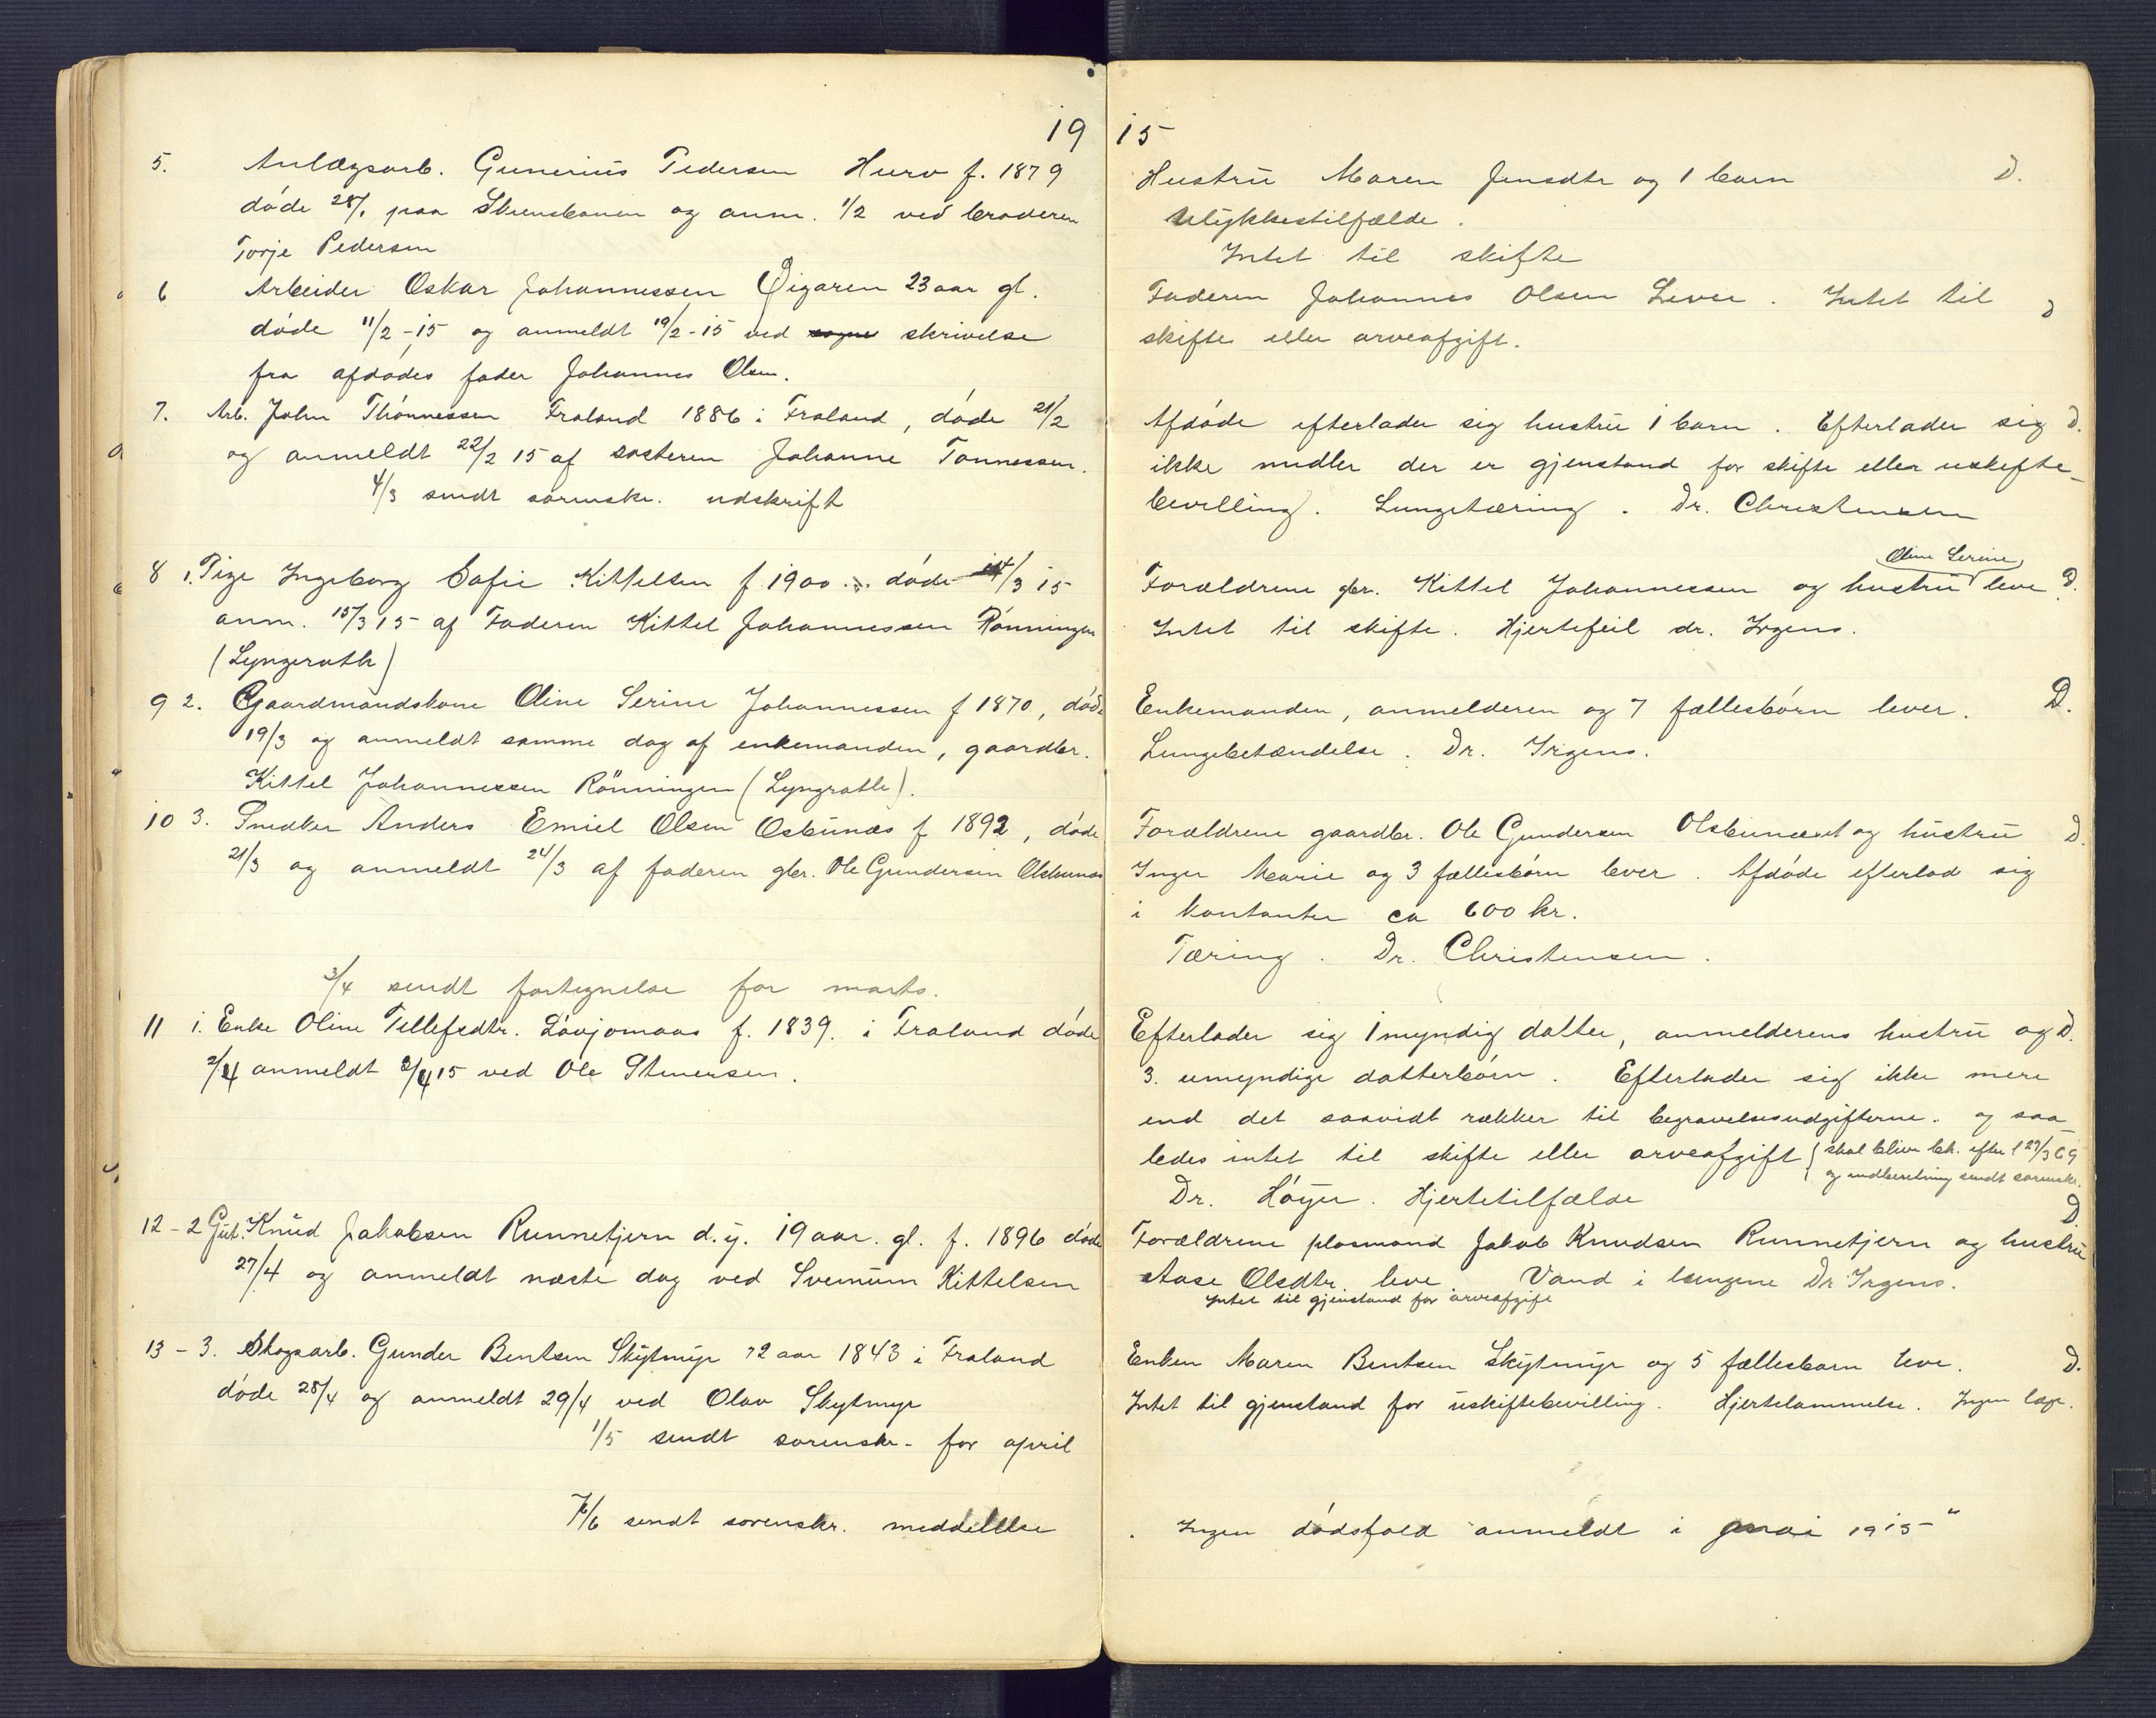 19 15
5. Anlægsarb. Gunerius Pedersen Hurv f. 1879
døde 28/1 paa Skrenbanen og anm. 1/2 ved broderen
Torje Pedersen
6 Arbeider Oskar Johannessen Øigaren 23 aar gl.
døde 11/2-15 og anmeldt 19/2-15 ved skrivelse
fra afdødes fader Johannes Olsen.
7. Arb. John Thönnessen Froland 1886 i Froland, døde 21/2
og anmeldt 22/2 15 af søsteren Johanne Tønnessen.
4/3 sendt sorenskr. udskrift
8 1. Pige Ingeborg Sofie Kittelsen f. 1900 døde 14/3 15
anm. 15/3 15 af Faderen Kittel Johannessen Rønningen
(Lyngrath)
9 2. Gaardmandskone Oline Serine Johannessen f 1870, døde
19/3 og anmeldt samme dag af enkemanden, gaardbr.
Kittel Johannessen Rönningen (Lyngrath).
10 3. Snedker Anders Emiel Olsen Osbunæs f 1892, døde
21/3 og anmeldt 24/3 af faderen gbr. Ole Gundersen Olsbunæs
3/4 sendt fortegnelse for marts.
11 1. Enke Oline Tellefsdtr. Løvjomaas f. 1839. i Froland døde
2/4 anmeldt 3/4 15 ved Ole Stenersen.
12 - 2 Gut. Knud Jakobsen Runnetjern d.y. 19 aar. gl. f. 1896 døde
27/4 og anmeldt næste dag ved Svenum Kittelsen
13 - 3. Skogsarb. Gunder Bentsen Skytmyr 72 aar 1843 i Froland
døde 28/4 og anmeldt 29/4 ved Olav Skytmyr
1/5 sendt sorenskr. for april
7/6 sendt sorenskr. meddelelse
Hustru Maren Jensdtr og 1 barn D.
Ulykkestilfælde.
Intet til skifte
Faderen Johannes Olsen Lever. Intet til D
skifte eller arveafgift.
Afdøde efterlader sig hustru 1 barn. Efterlader sig D.
ikke midler der er gjenstand for skifte eller uskifte-
bevilling. Lungetæring. Dr. Christensen
Oline Serine
Forældrene gbr. Kittel Johannessen og hustru leve D.
Intet til skifte. Hjertefeil dr. Irgens.
Enkemanden, anmelderen og 7 fællesbørn lever. D.
Lungebetændelse. Dr. Irgens.
Forældrene gaardbr. Ole Gundersen Olsbunæset og hustru D.
Inger Marie og 3 fællesbørn lever. Afdøde efterlod sig
i kontanter ca 600 kr.
Tæring. Dr. Christensen.
Efterlader sig 1 myndig datter, anmelderens hustru og D.
3. umyndige datterbørn. Efterlader sig ikke mere
end det saavidt rækker til begravelsesudgifterne. og saa
ledes intet til skifte eller arveafgift (skal blive beh. efter l 27/3 69
og indberetning sendt sorenskr.
Dr. Høyer. Hjertetilfælde
D
Forældrene plasmand Jakob Knudsen Runnetjern og hustru
Aase Olsdtr. leve. Vand i lungene Dr Irgens.
Intet til gjenstand for arveafgift
Enken Maren Bentsen Skytmyr og 5 fællesbarn leve. D.
Intet til gjenstand for uskiftebevilling. Hjertelammelse. Ingen læge.
Ingen dødsfald anmeldt i mai 1915"